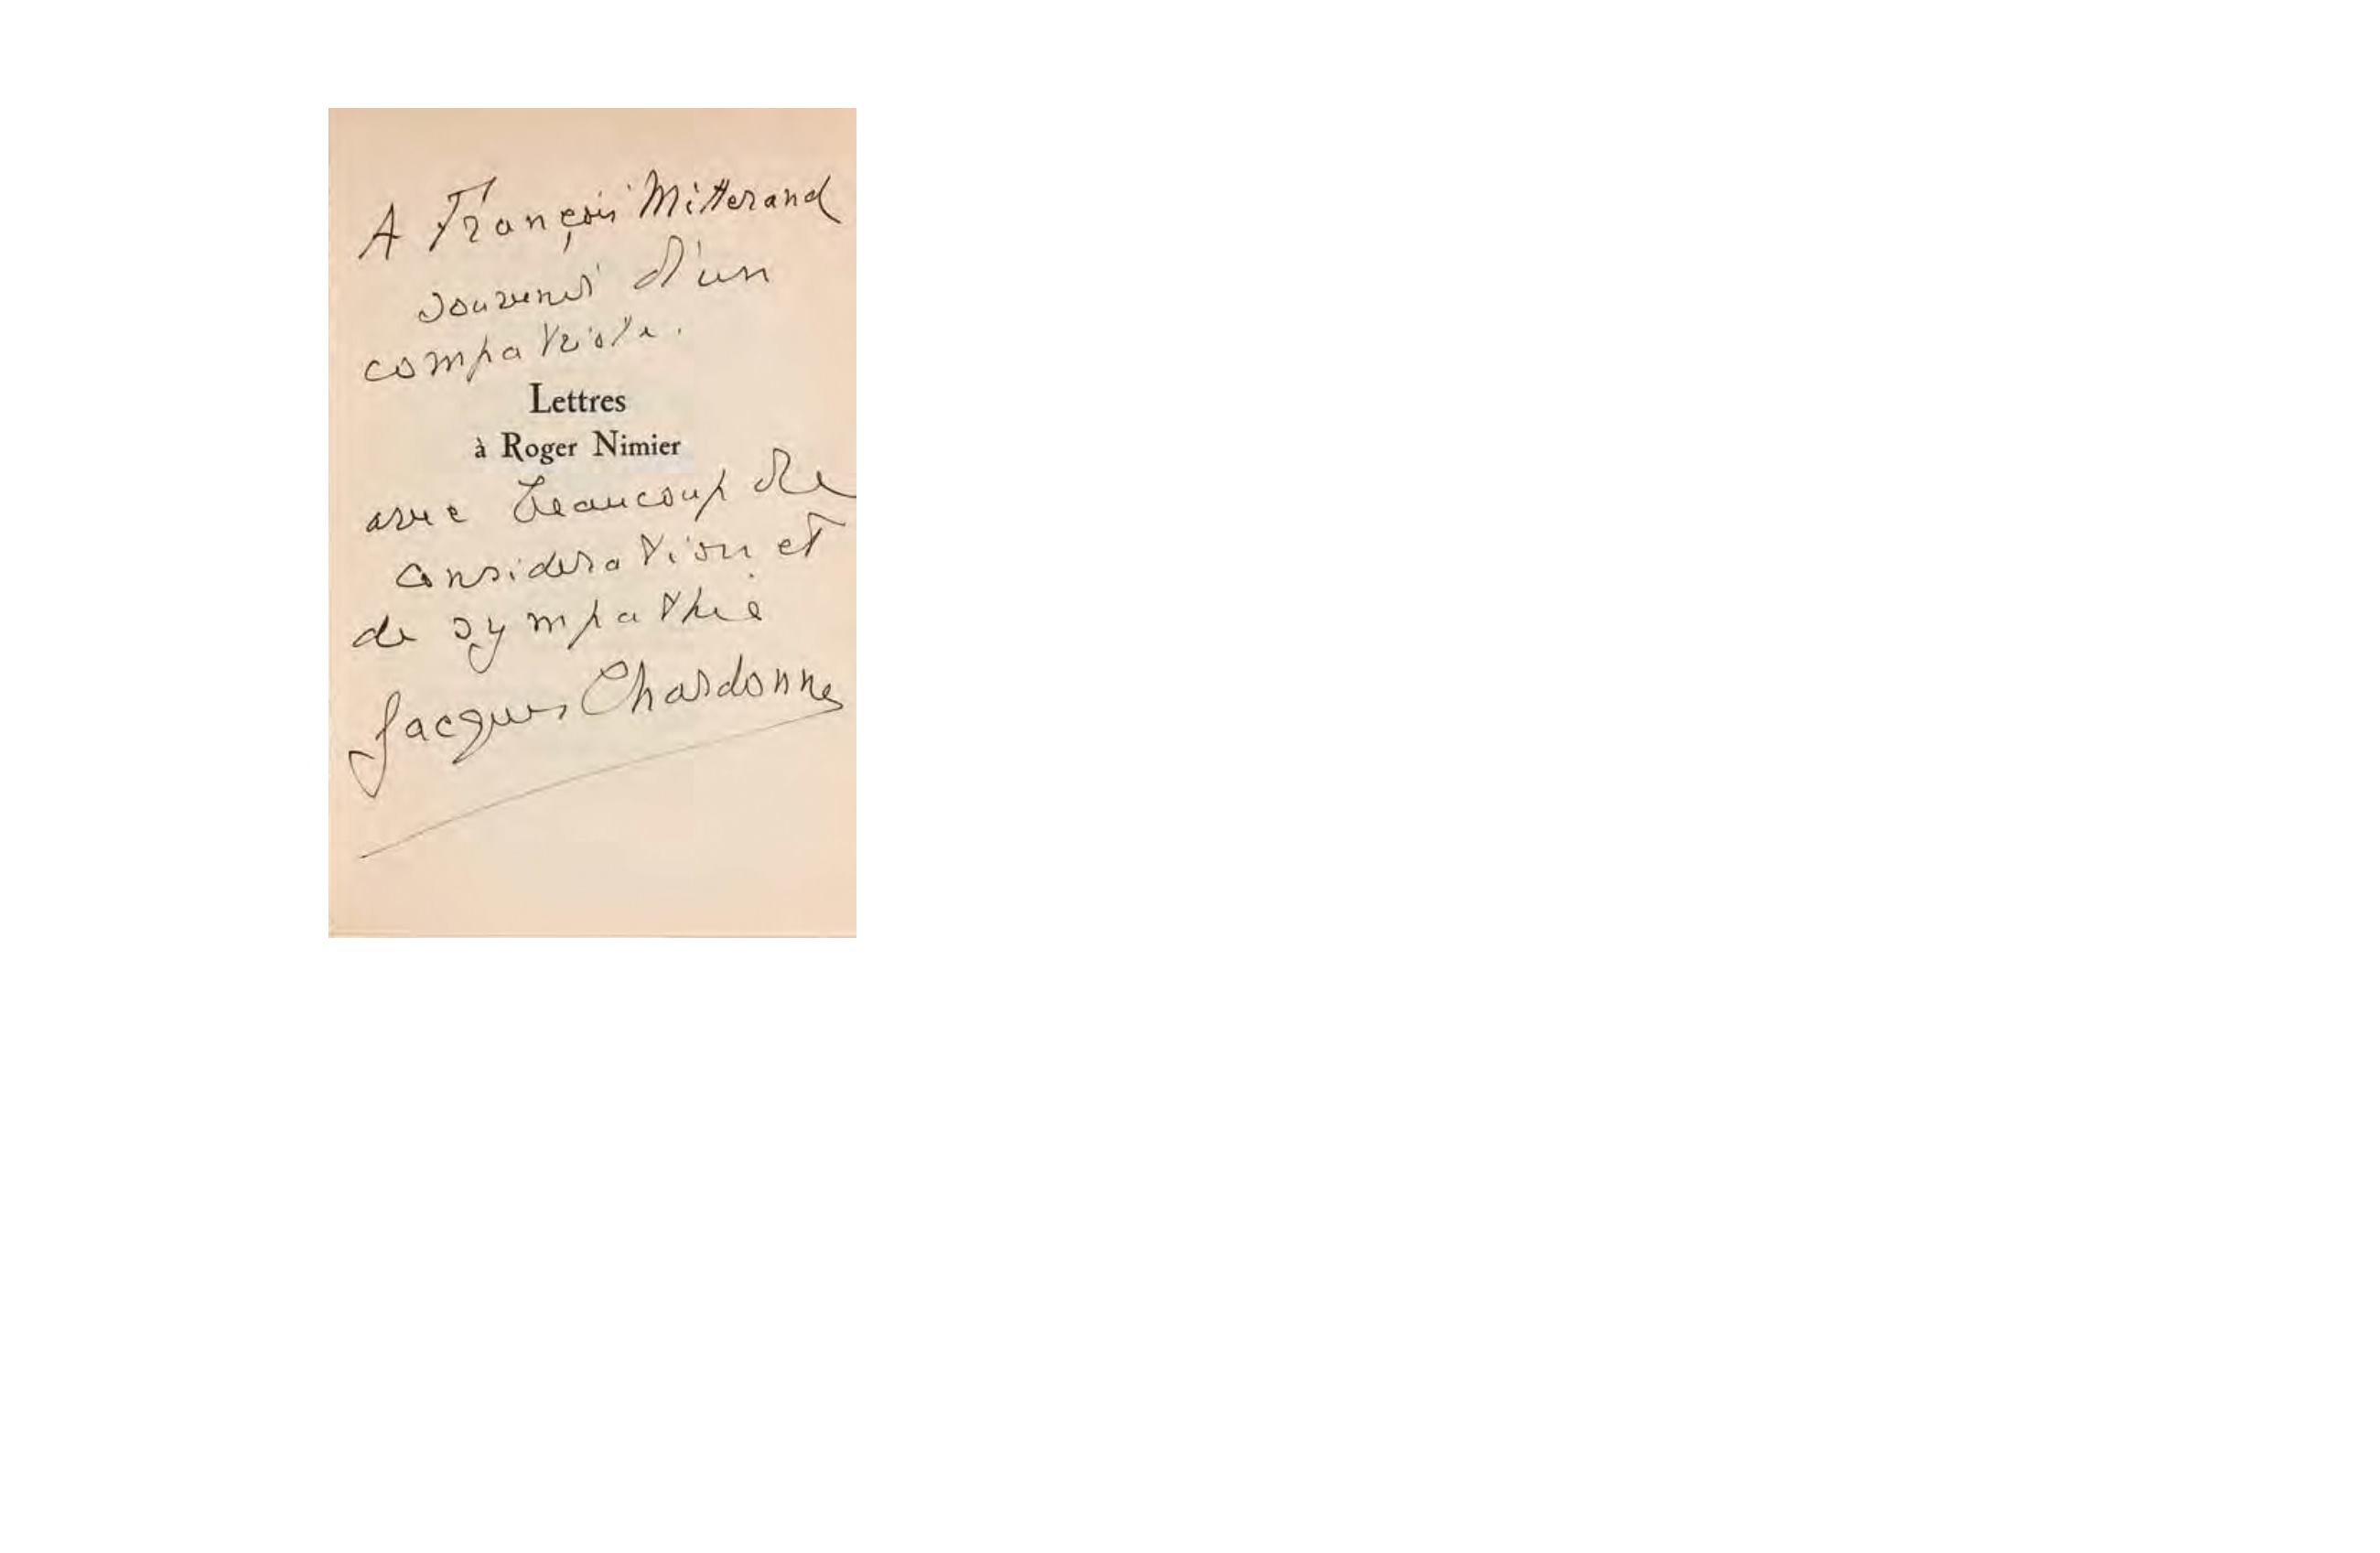 A François Mitterand
souvenir d'un
compatriote.
Lettres
à Roger Nimier
avec beaucoup de
consideration et
de sympathie
Jacques Chardonne